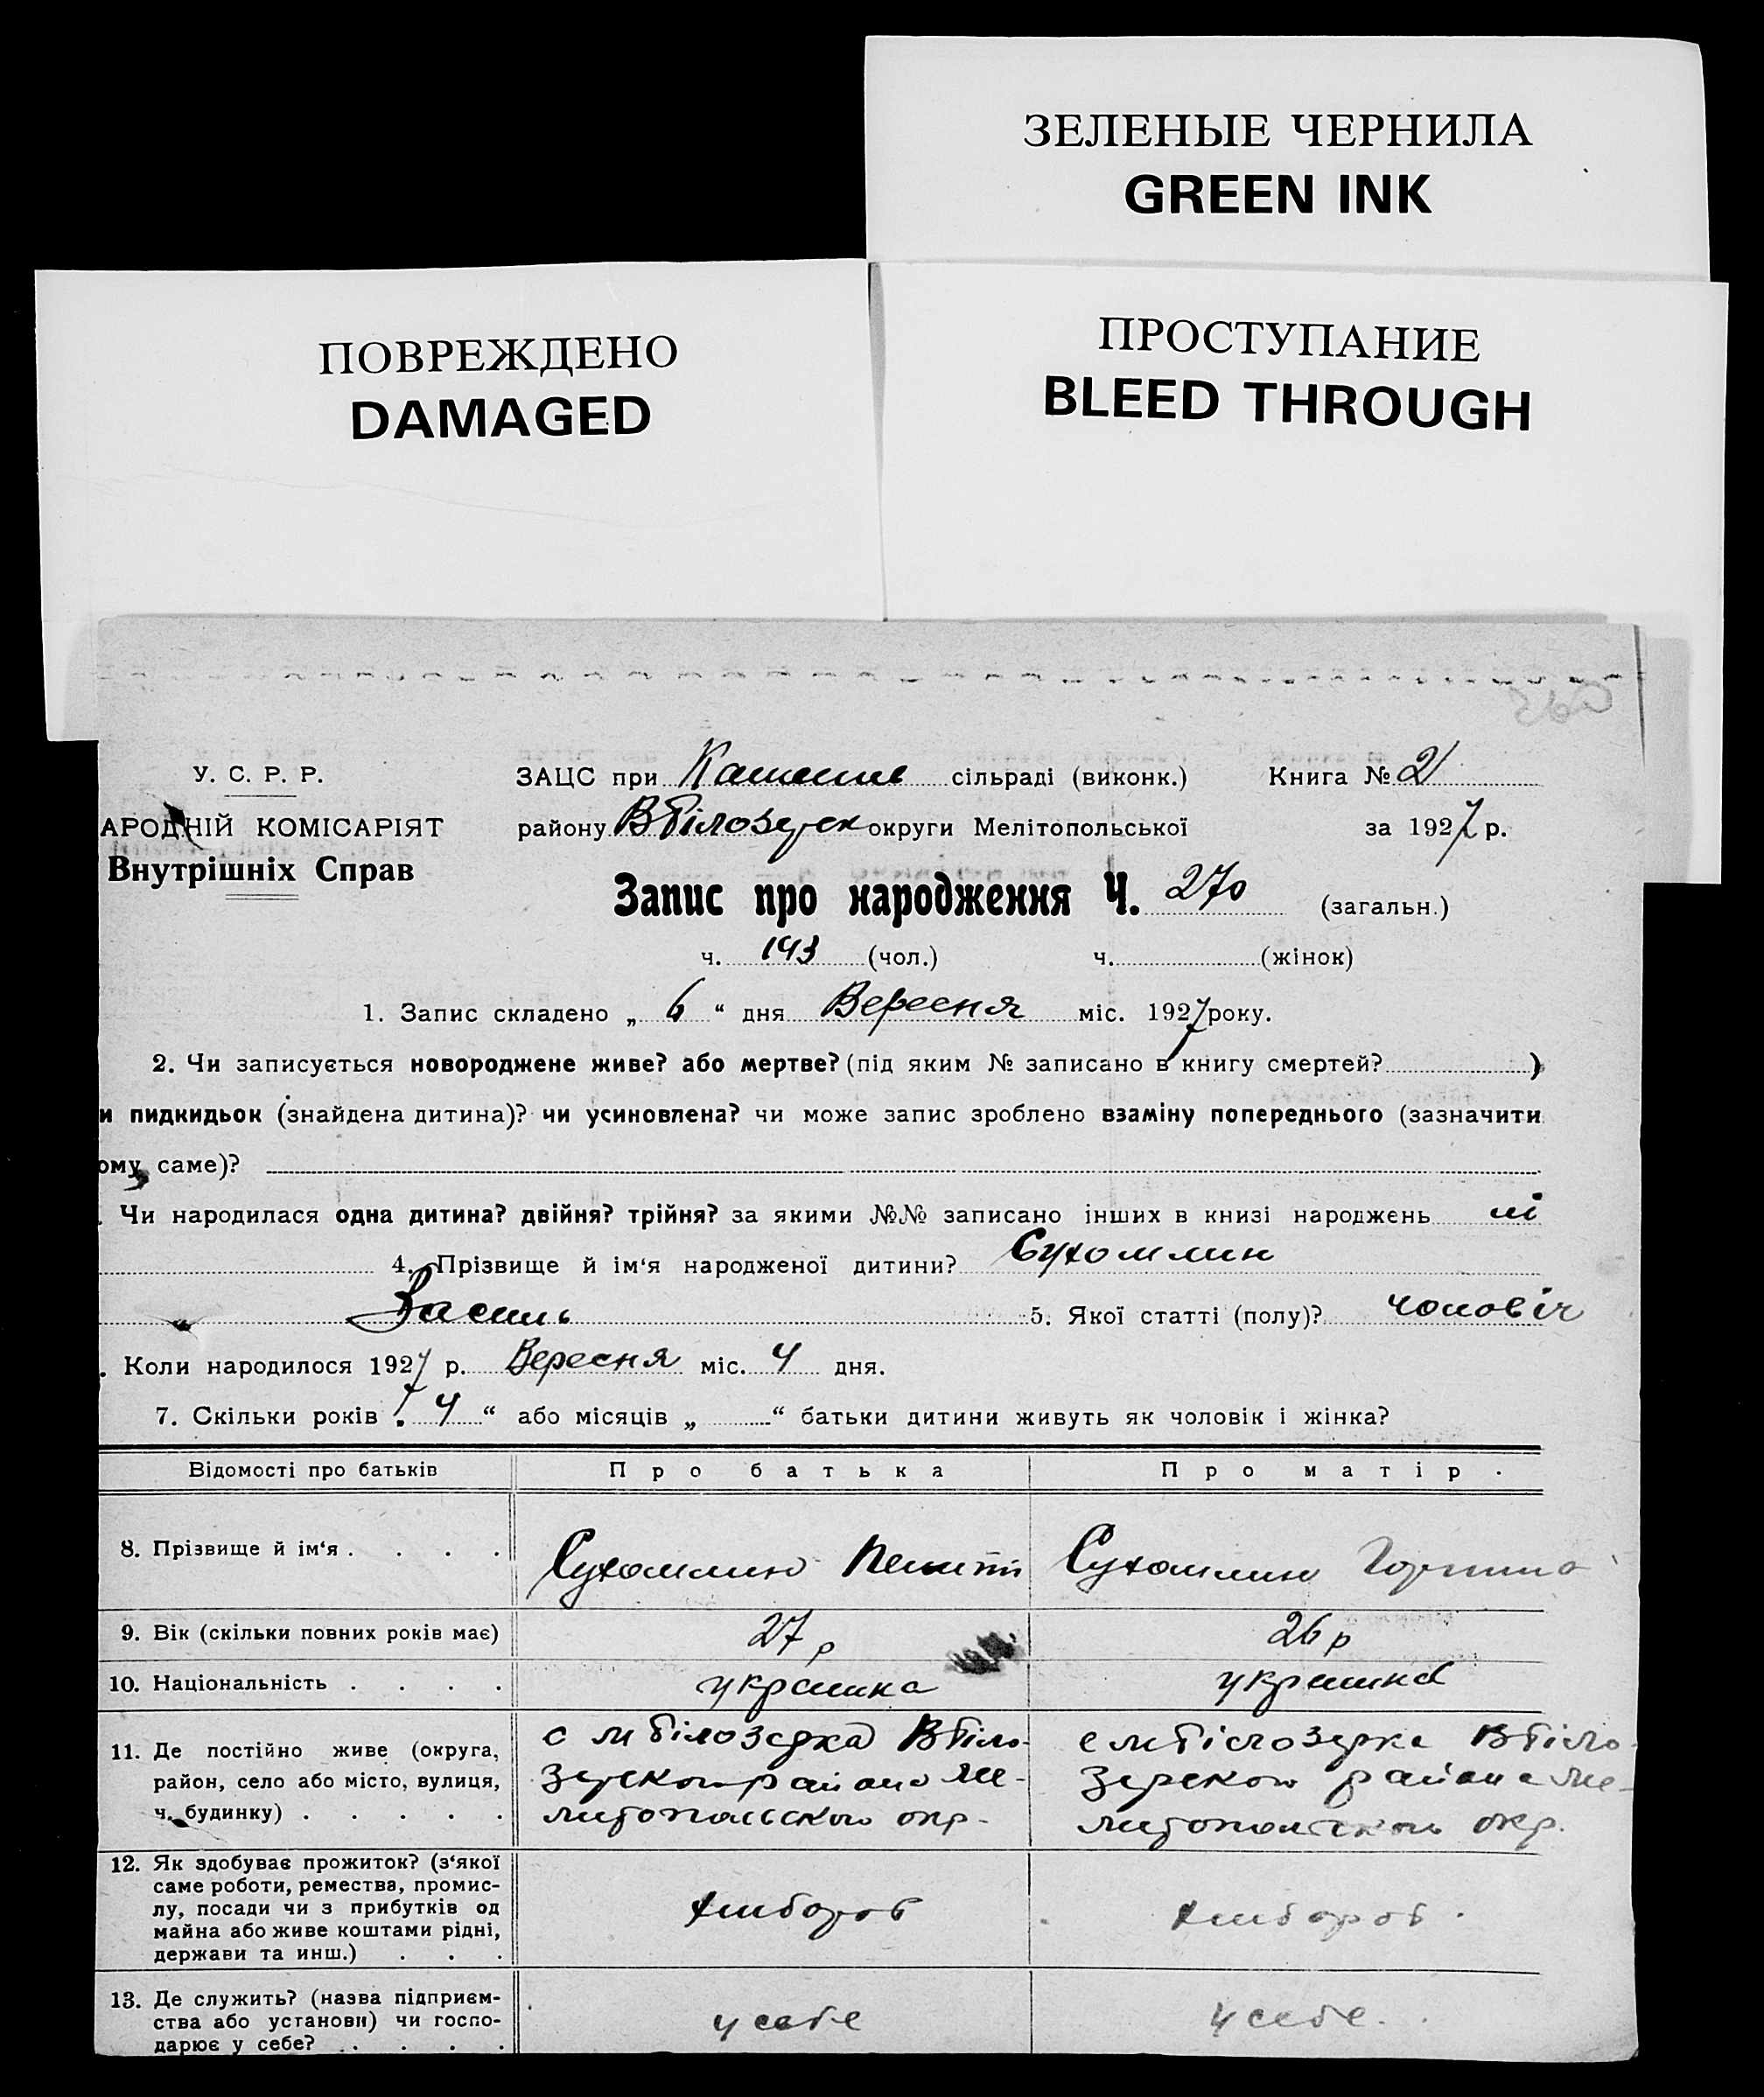 ЗЕЛЕНЫЕ ЧЕРНИЛА
GREEN INK
ПОВРЕЖДЕНО
DAMAGED
ПРОСТУПАНИЕ
BLEED THROUGH
У. С. Р. Р.
АРОДНІЙ КОМІСАРІЯТ
Внутрішніх Справ
ЗАЦС при сільраді (виконк.) Книга № 21
району ВБілозерск округи Мелітопольської за 1927 р.
Запис про народження Ч. 270 (загальн.)
ч. 143 (чол.) ч. (жінок)
1. Запис складено „ 6 “ дня Вересня міс. 1927 року.
2. Чи записується новороджене живе? або мертве? (під яким № записано в книгу смертей? )
и пидкидьок (знайдена дитина)? чи усиновлена? чи може запис зроблено взаміну попереднього (зазначити
ому саме)?
. Чи народилася одна дитина? двійня? трійня? за якими №№ записано інших в книзі народжень ні
4. Прізвище й ім‘я народженої дитини? Сухомлин
Василь 5. Якої статті (полу)? чоловіч
. Коли народилося 1927 р. Вересня міс. 4 дня.
7. Скільки років „ 4 “ або місяців „ “ батьки дитини живуть як чоловік і жінка?
Відомості про батьків Про батька Про матір.
8. Прізвище й ім‘я . . . . Сухомлин Сухомлин Горпина
9. Вік (скільки повних років має) 27 р 26 р
10. Національність . . . . українка українка
11. Де постійно живе (округа,
район, село або місто, вулиця,
ч. будинку) . . . . .
с М Білозерка ВБіло-
зерског района Ме-
литопольског окр-
с М Білозерка ВБіло-
зерског района Ме-
литопольског окр.
12. Як здобуває прожиток? (з‘якої
саме роботи, ремества, промис-
лу, посади чи з прибутків од
майна або живе коштами рідні,
держави та инш.) . . .
хлибороб хлибороб.
13. Де служить? (назва підприєм-
ства або установи) чи госпо-
дарює у себе? . . . .
у себе у себе.